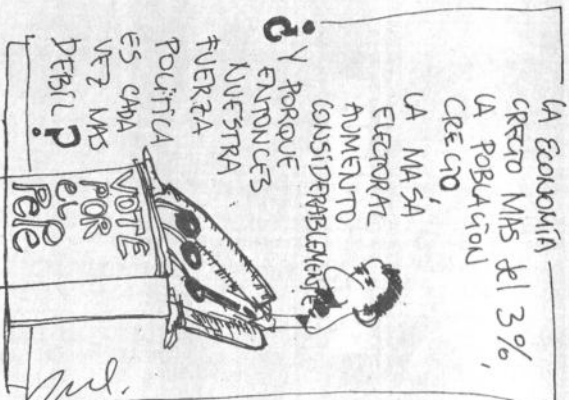 LA ECONOMÍA
CRECIO MAS del 3%,
LA POBLACIÓN
CRECIO,
LA MASA
ELECTORAL
AUMENTO
CONSIDERABLEMENTE
¿Y PORQUE
ENTONCES
NUESTRA
FUERZA
POLÍTICA
ES CADA
VEZ MAS
DEBIL?
VOTE
POR
EL
PEPE